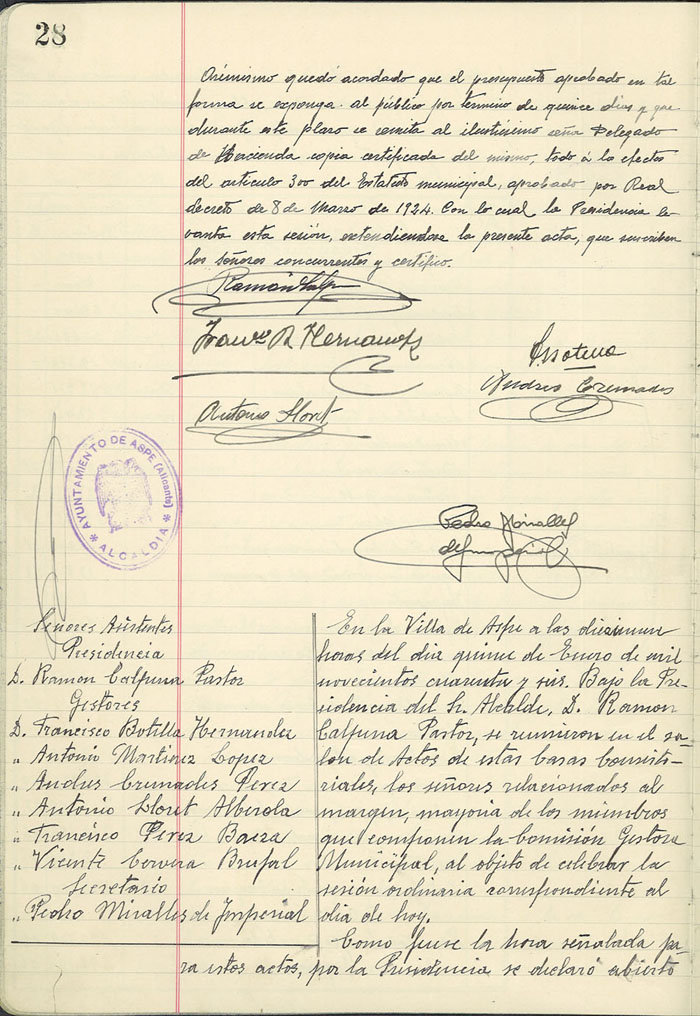 28
Asimismo quedó acordado que el presupuesto aprobado en tal
forma se exponga al público por término de quince dias y que
durante este plazo se remita al ilustrisimo señor Delegado
de Hacienda copia certificada del mismo, todo á los efectos
del articulo 300 del Estatuto municipal, aprobado por Real
decreto de 8 de Marzo de 1924. Con lo cual la Presidencia le-
vanta esta sesión, extendiendose la presente acta, que suscriben
los señores concurrentes y certifico.
Ramón
Franco B Hernandez
Andres Cremades
Antonio Lloret
AYUNTAMIENTO DE ASPE (Alicante)
* ALCALDIA *
Pedro Miralles
Señores Asistentes
Presidencia
D. Ramon Calpena Pastor
Gestores
D. Francisco Botella Hernandez
" Antonio Martinez Lopez
" Andres Cremades Perez
" Antonio Lloret Alberola
" Francisco Perez Baeza
" Vicente Cervera Brufal
Secretario
" Pedro Miralles de Imperial
En la Villa de Aspe a las diecinueve
horas del dia quince de Enero de mil
novecientos cuarenta y seis. Bajo la Pre-
sidencia del Sr. Alcalde, D. Ramon
Calpena Pastor, se reunieron en el sa-
lon de Actos de estas Casas Consisto-
riales, los señores relacionados al
margen, mayoria de los miembros
que componen la Comisión Gestora
Municipal, al objeto de celebrar la
sesión ordinaria correspondiente al
dia de hoy.
Como fuese la hora señalada pa-
ra estos actos, por la Presidencia se declaró abierto